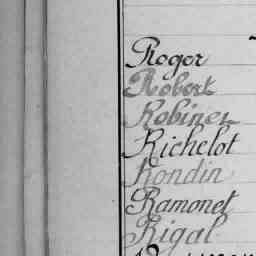 Roger
Robert
Robiner
Richelot
Rondin
Ramonet
Rigal